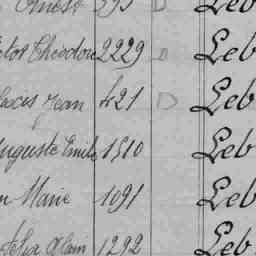 Ernest 595 D Leb
Théodore 2229 D Leb
Jean 421 D Leb
Auguste Emile 1510 Leb
Marie 1091 Leb
Alain 1292 Leb